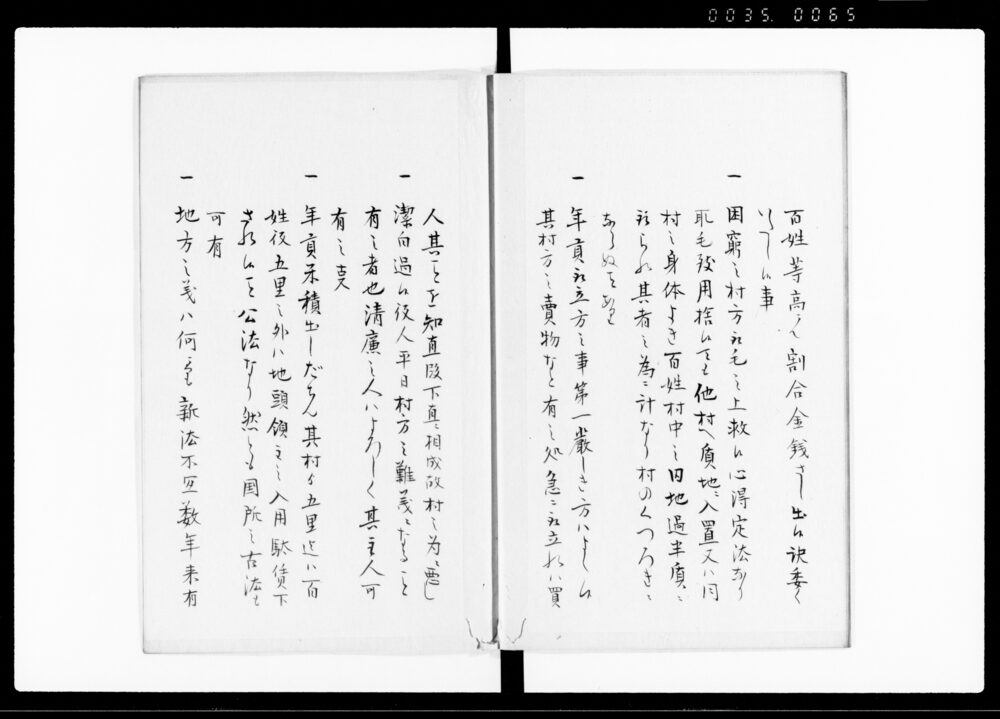 0035. 0065
百姓等高ニ而割合金銭さし出候訳委く
いたし候事
一 困窮之村方取毛之上救候心得定法なり
取毛致用捨候而も他村へ質地ニ入置又ハ同
村之身体よき百姓村中之田地過半質ニ
取られ其者之為ニ計なり村のくつろきニ
ならぬこと
一 年貢取立方之事第一厳しき方ハよし
其村方之賣物なと有之処急ニ取立れハ買
人其ことを知直段下直ニ相成故村之为ニ悪し
一 潔白過候役人平日村方之難義ニなること
有之者也清廉之人ハよろしく其主人可
有之哉
一 年貢米積出しだちん其村ゟ五里迄ハ百
姓役五里之外ハ地頭領主之入用駄賃下
され候こと公法なり然とも国所之古法も
可有
一 地方之義ハ何ニても新法不宜数年来有